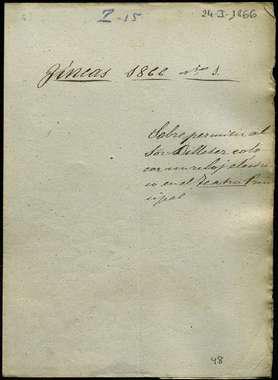 I-15
24-I-1866
Fincas 1866 nº 1.
Sobre permitir al
Sor. colo
car un reloj eléctri
co en el Teatro Prin
cipal
48